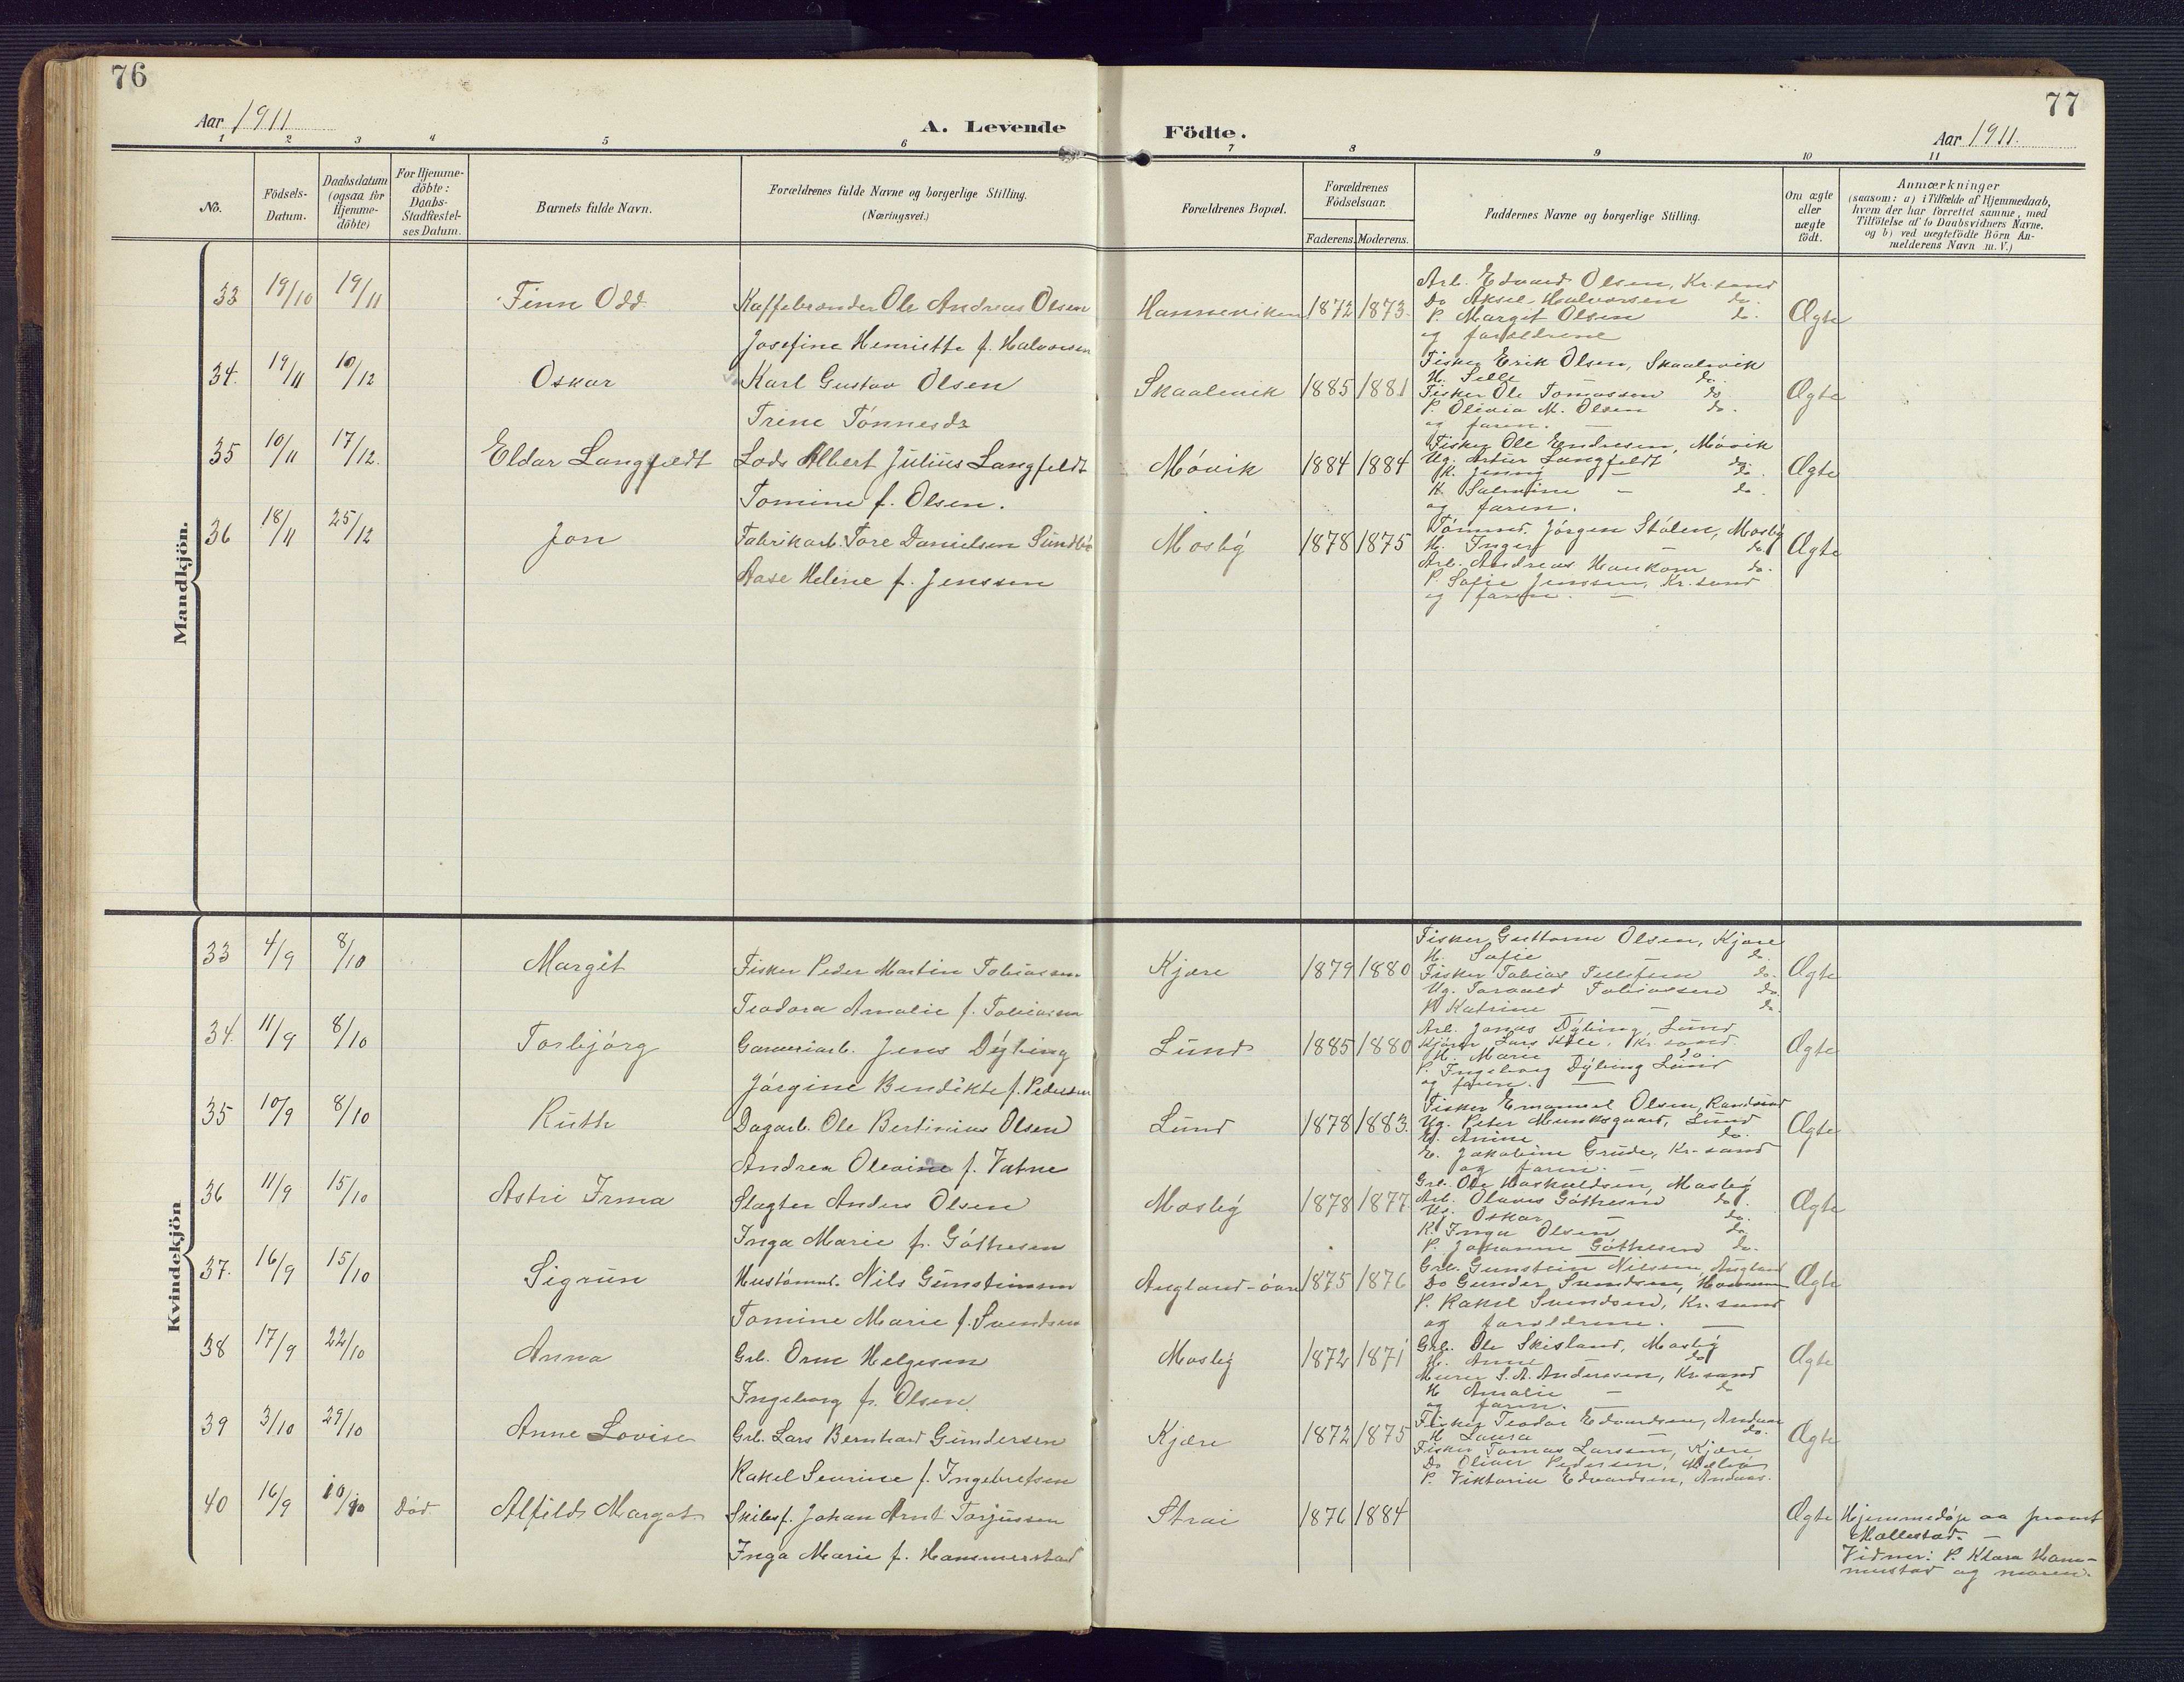 76
77
Aar 1911
A. Levende Födte.
Aar 1911.
1 2 3 4 5 6 7 8 9 10 11
No.
Födsels-
Datum.
Daabsdatum
(ogsaa for
Hjemme-
döbte)
For Hjemme-
döbte:
Daabs-
Stadfæstel-
ses Datum.
Barnets fulde Navn.
Forældrenes fulde Navne og borgerlige Stilling.
(Næringsvei.)
Forældrenes Bopæl.
Forældrenes
Födselsaar.
Faderens. Moderens.
Faddernes Navne og borgerlige Stilling.
Om ægte
eller
uægte
födt.
Anmærkninger
(saasom: a) i Tilfælde af Hjemmedaab,
hvem der har forrettet samme, med
Tilföielse af to Daabsvidners Navne,
og b) ved uægtefödte Börn An-
melderens Navn m. V.)
Mandkjön.
33 19/10 19/11 Finn Odd. Kaffebrænder Ole Andreas Olsen
Josefine Henriette f. Halvorsen
Hanneviken 1872 1873.
Arb. Edvard Olsen, Kr.sand
Do Aksel Halvorsen do.
P. Margit Olsen do.
og forældrene
Ægte
34. 19/11 10/12 Oskar Karl Gustav Olsen
Trine Tönnesdr
Skaalevik 1885 1881
Fisker Erik Olsen, Skaalevik
H. Selle do.
Fisker Ole Tomassen do
P. Olivia M. Olsen do.
og faren. —
Ægte
35 10/11 17/12. Eldar Langfeldt Lods Albert Julius Langfeldt
Tomine f. Olsen.
Móvik 1884 1884
Fisker Ole Endresen, Móvik
Ug. Artur Langfeldt do.
K. Jenny — do.
K. Salmine — do.
og faren.
Ægte
36 18/11 25/12 Jon Fabrikarb. Tore Danielsen
Aase Helene f. Jenssen
Mosbý 1878 1875
Tómmd. Jörgen Stólen, Mosbý
H. Inger do.
Arb. Andreas Haukom do.
P. Sofie Jenssen, Kr.sand
og faren. —
Ægte
Kvindekjön
33 4/9 8/10 Margit Fisker Peder Martin Tobiassen
Teodora Amalie f. Tobiassen
Kjære 1879 1880
Fisker Guttorm Olsen, Kjære
H. Sofie do.
Fisker Tobias Tellefsen do.
Ug. Torvald Tobiassen do.
P. Katrine — — do.
Ægte
34. 11/9 8/10 Torbjórg Garveriarb. Jens Dýbing
Jórgine Bendikte f. Pedersen
Lund 1885 1880
Arb. Jonas Dýbing, Lund
Lars Kr.sand
H. Marie do.
P. Ingeborg Dýbing Lund
og faren. —
Ægte
35 10/9 8/10 Ruth Dagarb. Ole Bertinius Olsen
Andrea Olevine f. Vatne
Lund 1878 1883.
Fisker Emanuel Olsen, Randsund
Ug. Peter Munksgaard, Lund
H. Anine do.
E. Jakobine Grude, Kr.sand
og faren. —
Ægte
36 11/9 15/10 Astri Irma Slagter Anders Olsen
Inga Marie f. Góthesen
Mosbý 1878 1877.
Grb. Ole Haskuldsen, Mosbý
Arb. Olaves Góthesen do.
Ug. Oskar — do.
K. Inga Olsen do
P. Johanne Góthesen do.
Ægte
37. 16/9 15/10 Sigrun Hustómmd. Nils Gunsteinsen
Tomine Marie f. Svendsen
Augland-óvre 1875 1876
Grb. Gunstein Nilssen, Augland
Do Gunder Svendsen,
P. Rakel Svendsen, Kr.sand
og forældrene. —
Ægte
38 17/9 22/10 Anna Grb. Orm Helgesen
Ingeborg f. Olsen.
Mosbý 1872 1871
Grb. Ole Skisland, Mosbý
H. Anne — do
Murer S. A. Anderssen, Kr.sand
H Amalie — do
og faren. —
Ægte
39 3/10 29/10 Anne Lovise Grb. Lars Bernhard Gundersen
Rakel Severine f. Ingebretsen
Kjære 1872 1875
Fisker Teodor Edvardsen, Andaas
H Laura do.
Fisker Tomas Larssen, Kjære
Do Oliver Pedersen,
P. Viktoria Edvardsen, Andaas.
Ægte
40 16/9 10/10 Dód. Alfild Margot Skibsf. Johan Arnt Torjussen
Inga Marie f. Hammerstad
Strai 1876 1884
Ægte
Hjemmedóp av provst
Mollestad. —
Vidner: P. Klara Ham-
merstad og moren.